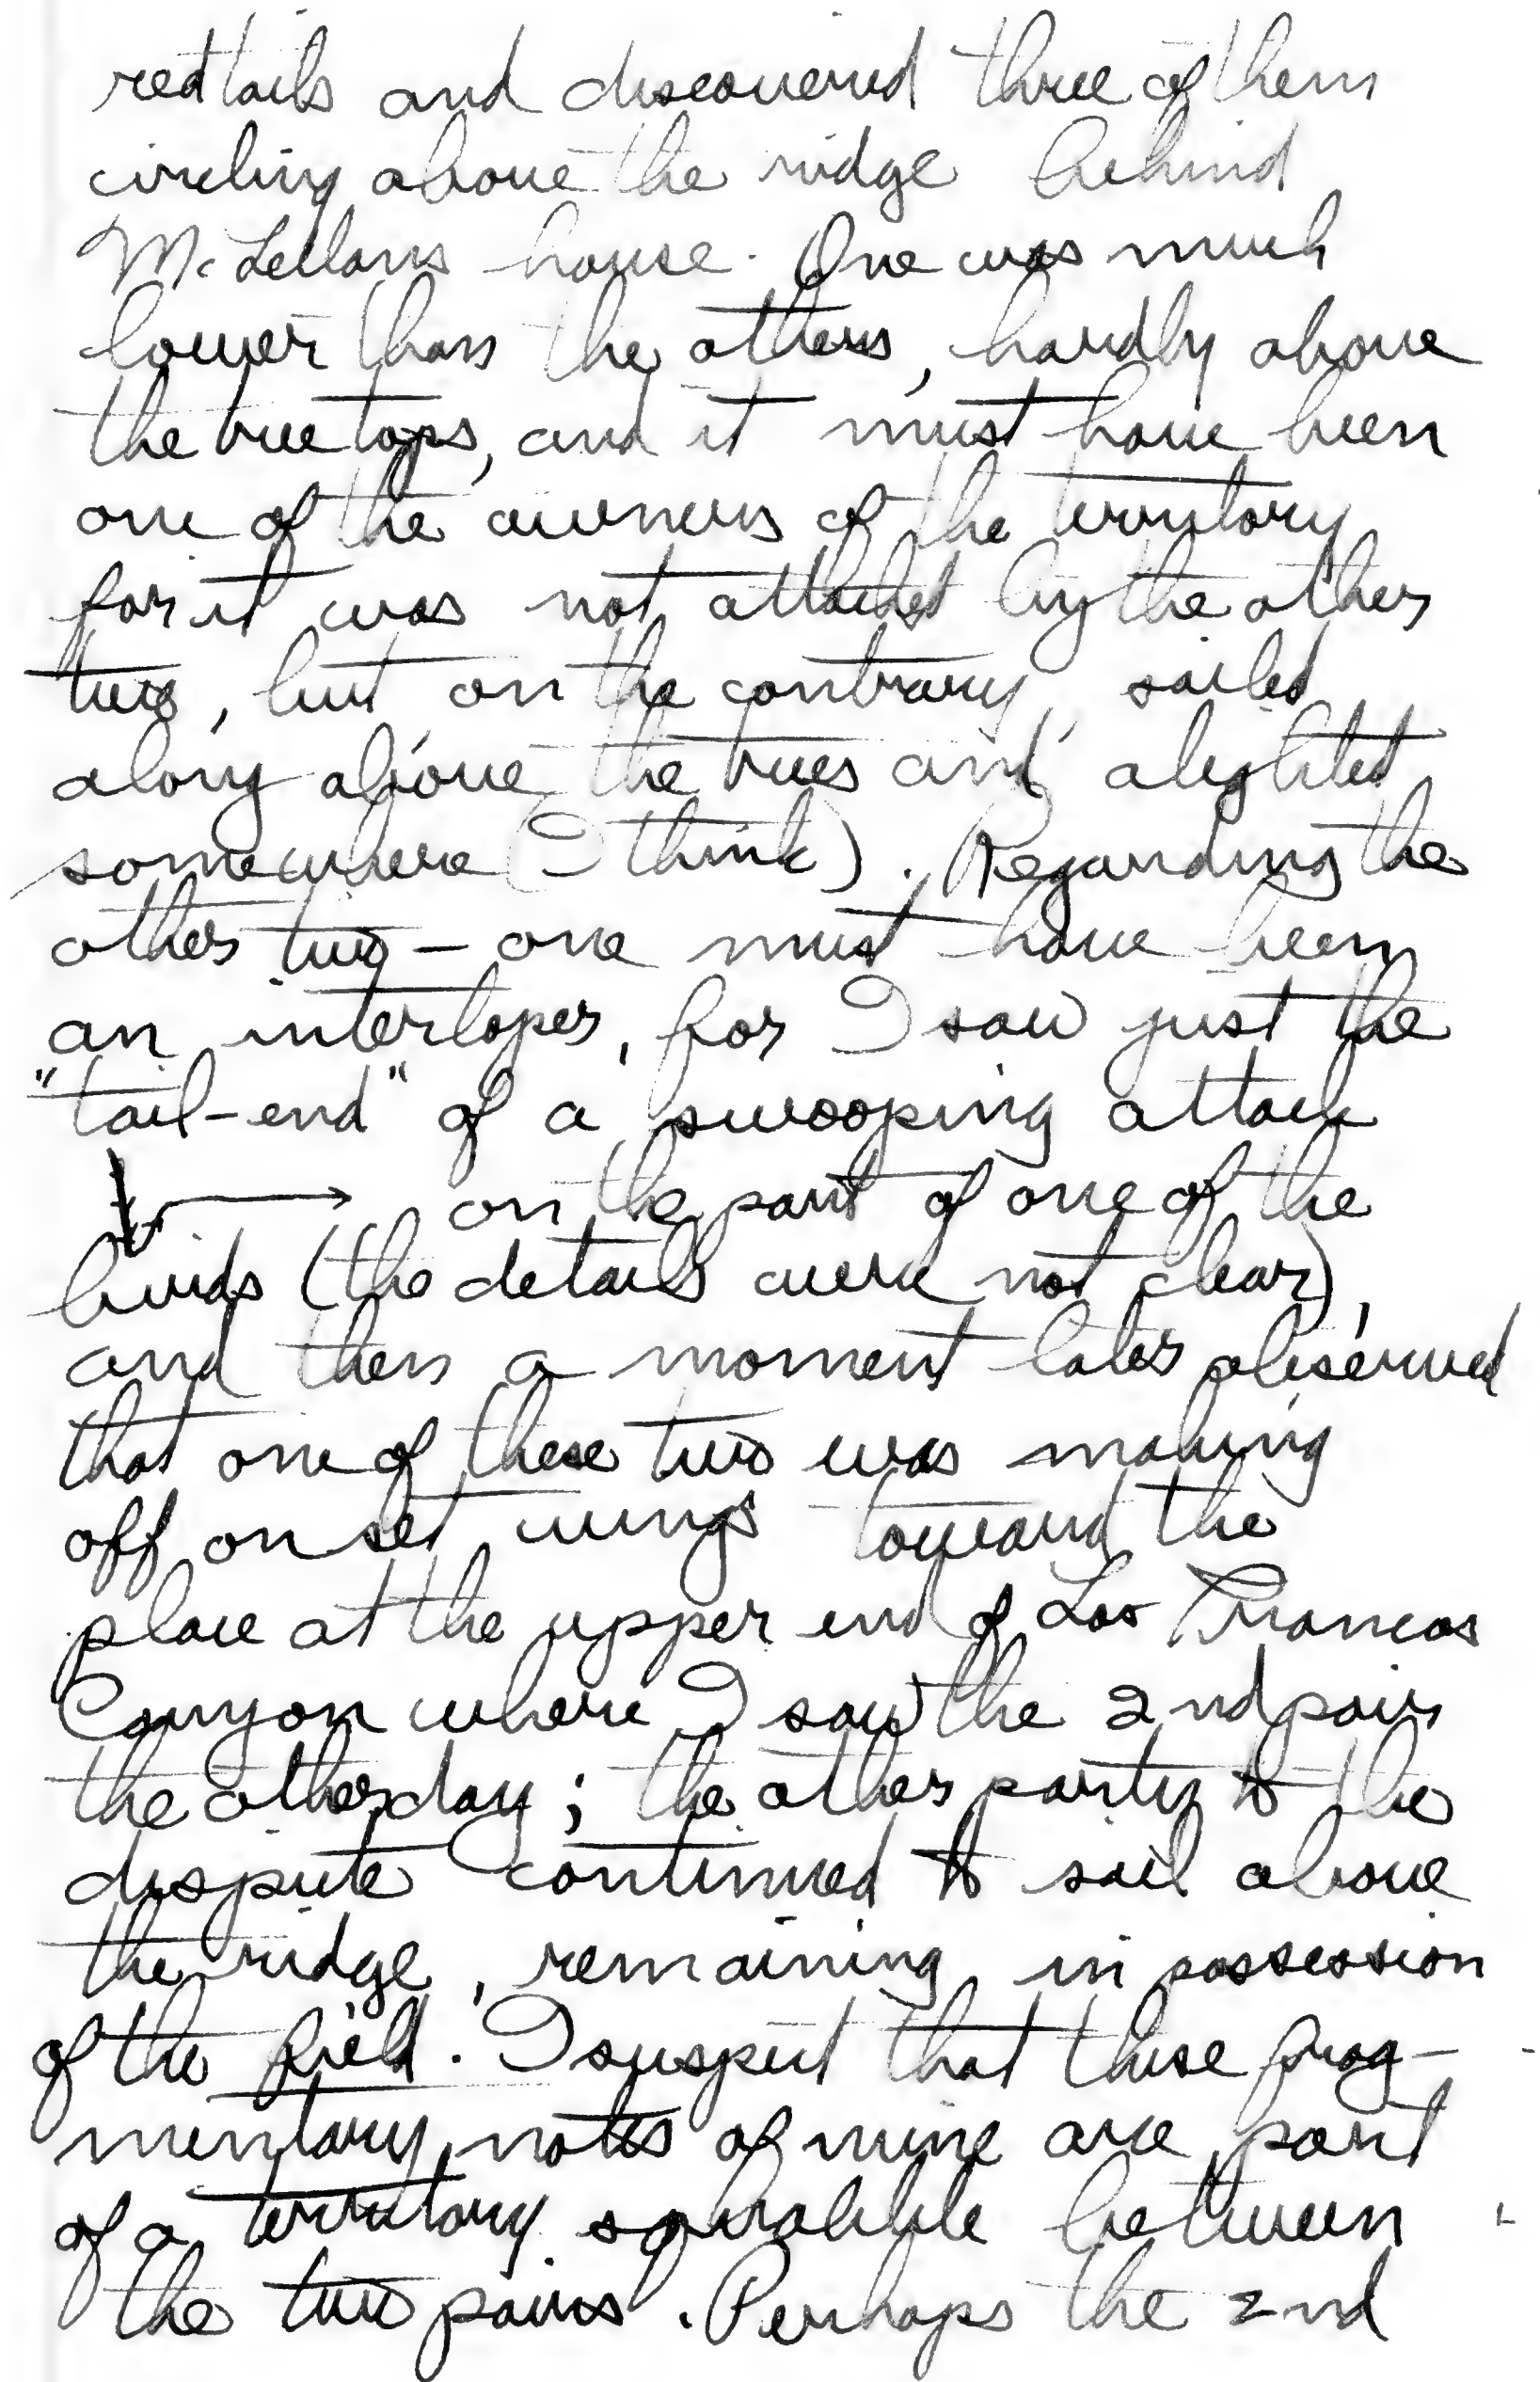 redtails and discovered three of them
circling above the ridge behind
McLellans house. One was much
lower than the others, hardly above
the tree tops, and it must have been
one of the owners of the territory
for it was not attacked by the other
two, but on the contrary, sailed
along above the trees and alighted
somewhere (I think). Regarding the
other two - one must have been
an interloper, for I saw just the
"tail-end" of a swooping attack
→ on the part of one of the
birds (the details were not clear),
and then a moment later observed
that one of these two was making
off on set wings toward the
place at the upper end of Los Trancos
Canyon where I saw the 2nd pair
the other day; the other party to the
dispute continued to sail above
the ridge, remaining in possession
of the field. I suspect that these frag-
mentary notes of mine are part
of a territory squabble between
the two pairs. Perhaps the 2nd